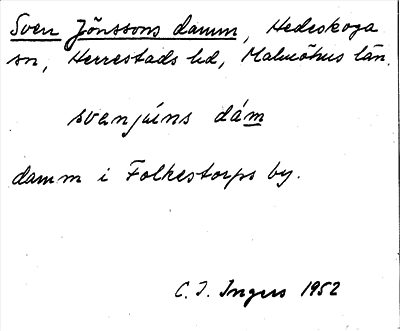 Sven Jönssons damm, Hedeskoga
sn, Herrestads hd, Malmöhus län.
svenjúins dám
damm i Folkestorps by.
C. I. Ingers 1952